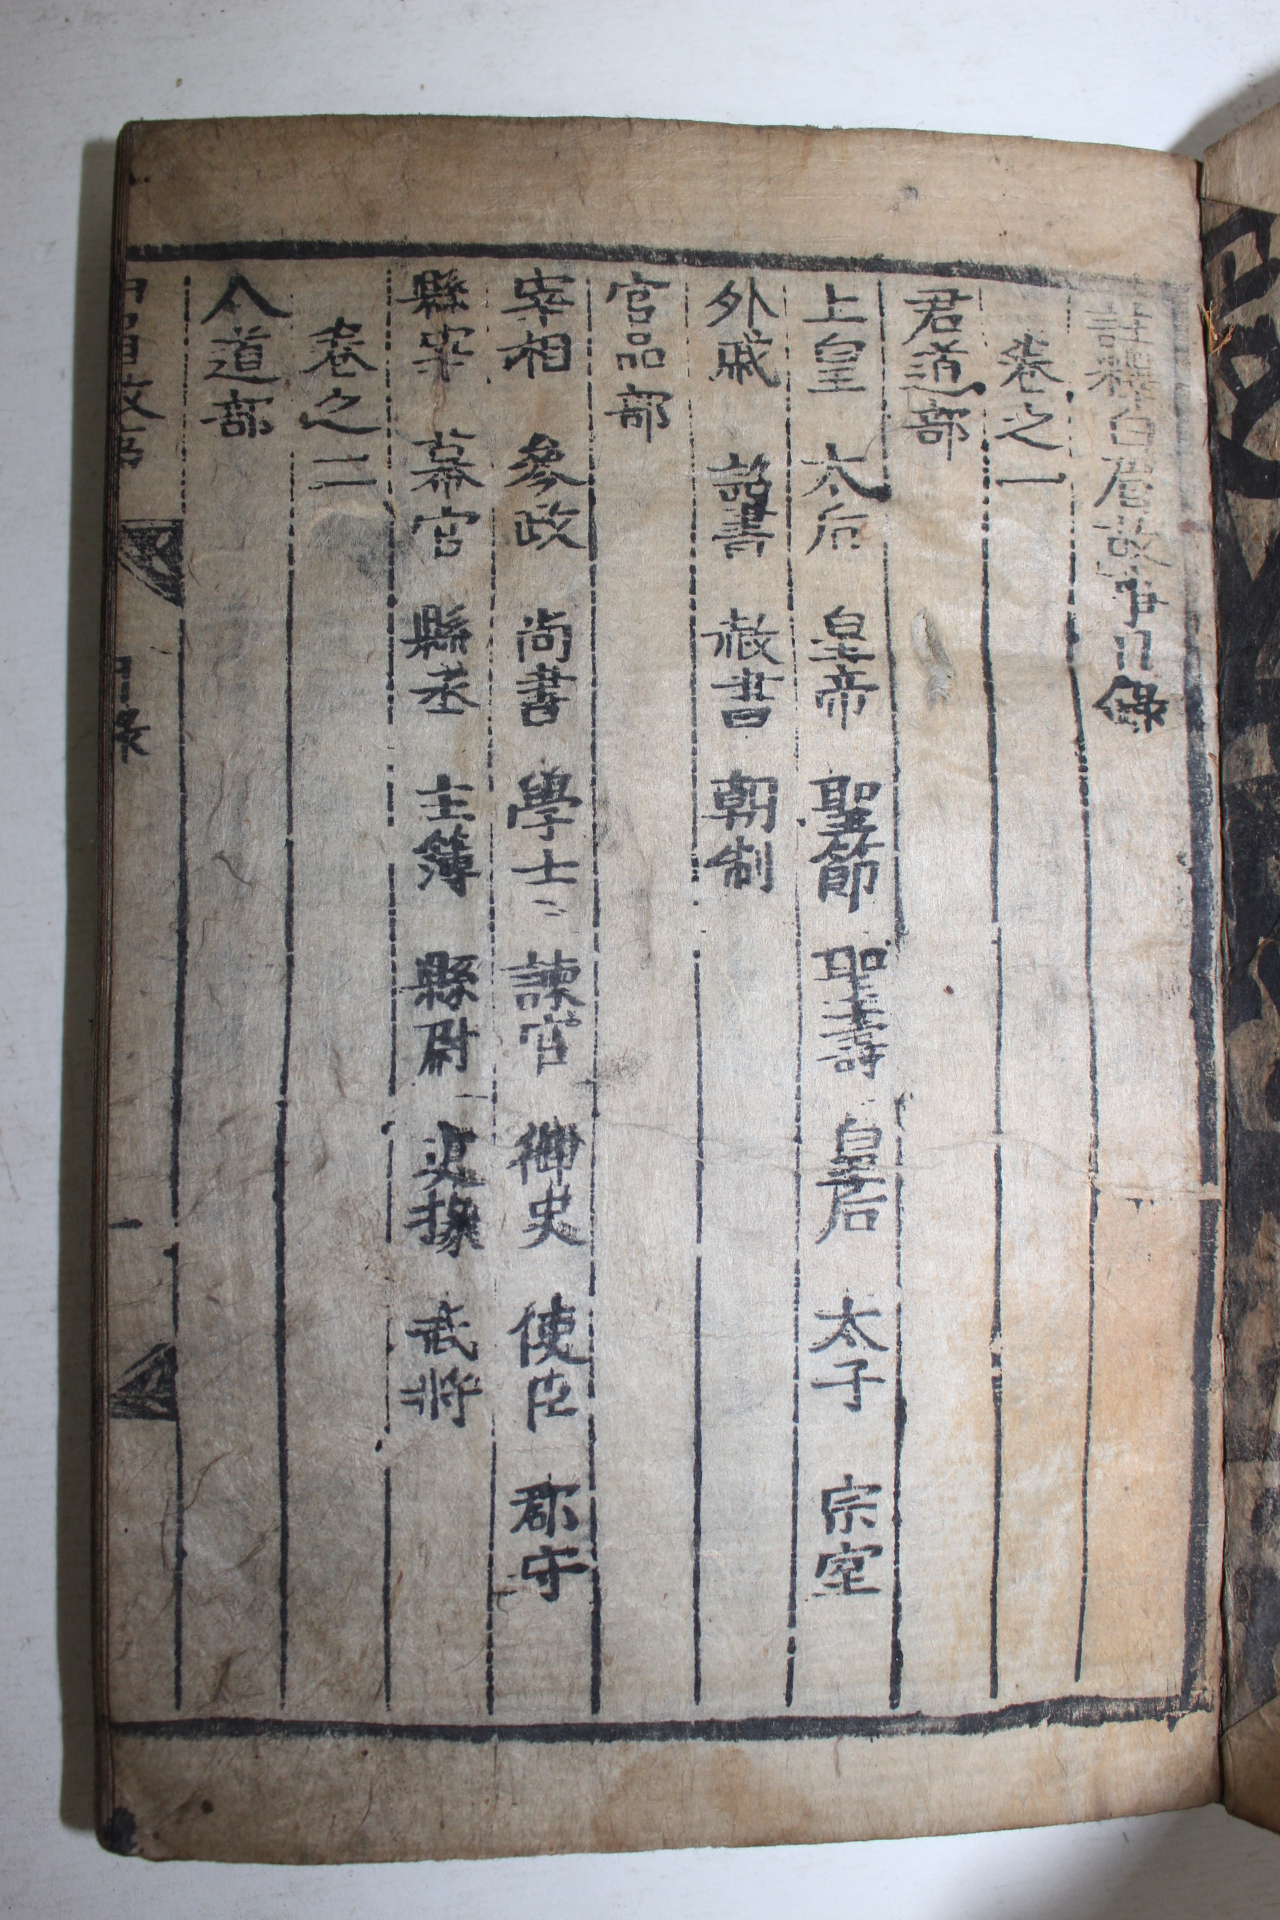 註釋白眉故事目錄
卷之一
君道部
上皇 太后 皇帝 聖節 聖壽 皇后 太子 宗室
外戚 詔書 赦書 朝制
官品部
宰相 參政 尚書 學士 諫官 御史 使臣 郡守
縣宰 幕官 縣丞 主簿 縣尉 吏掾 武將
卷之二
人道部
白眉故事 目錄 一